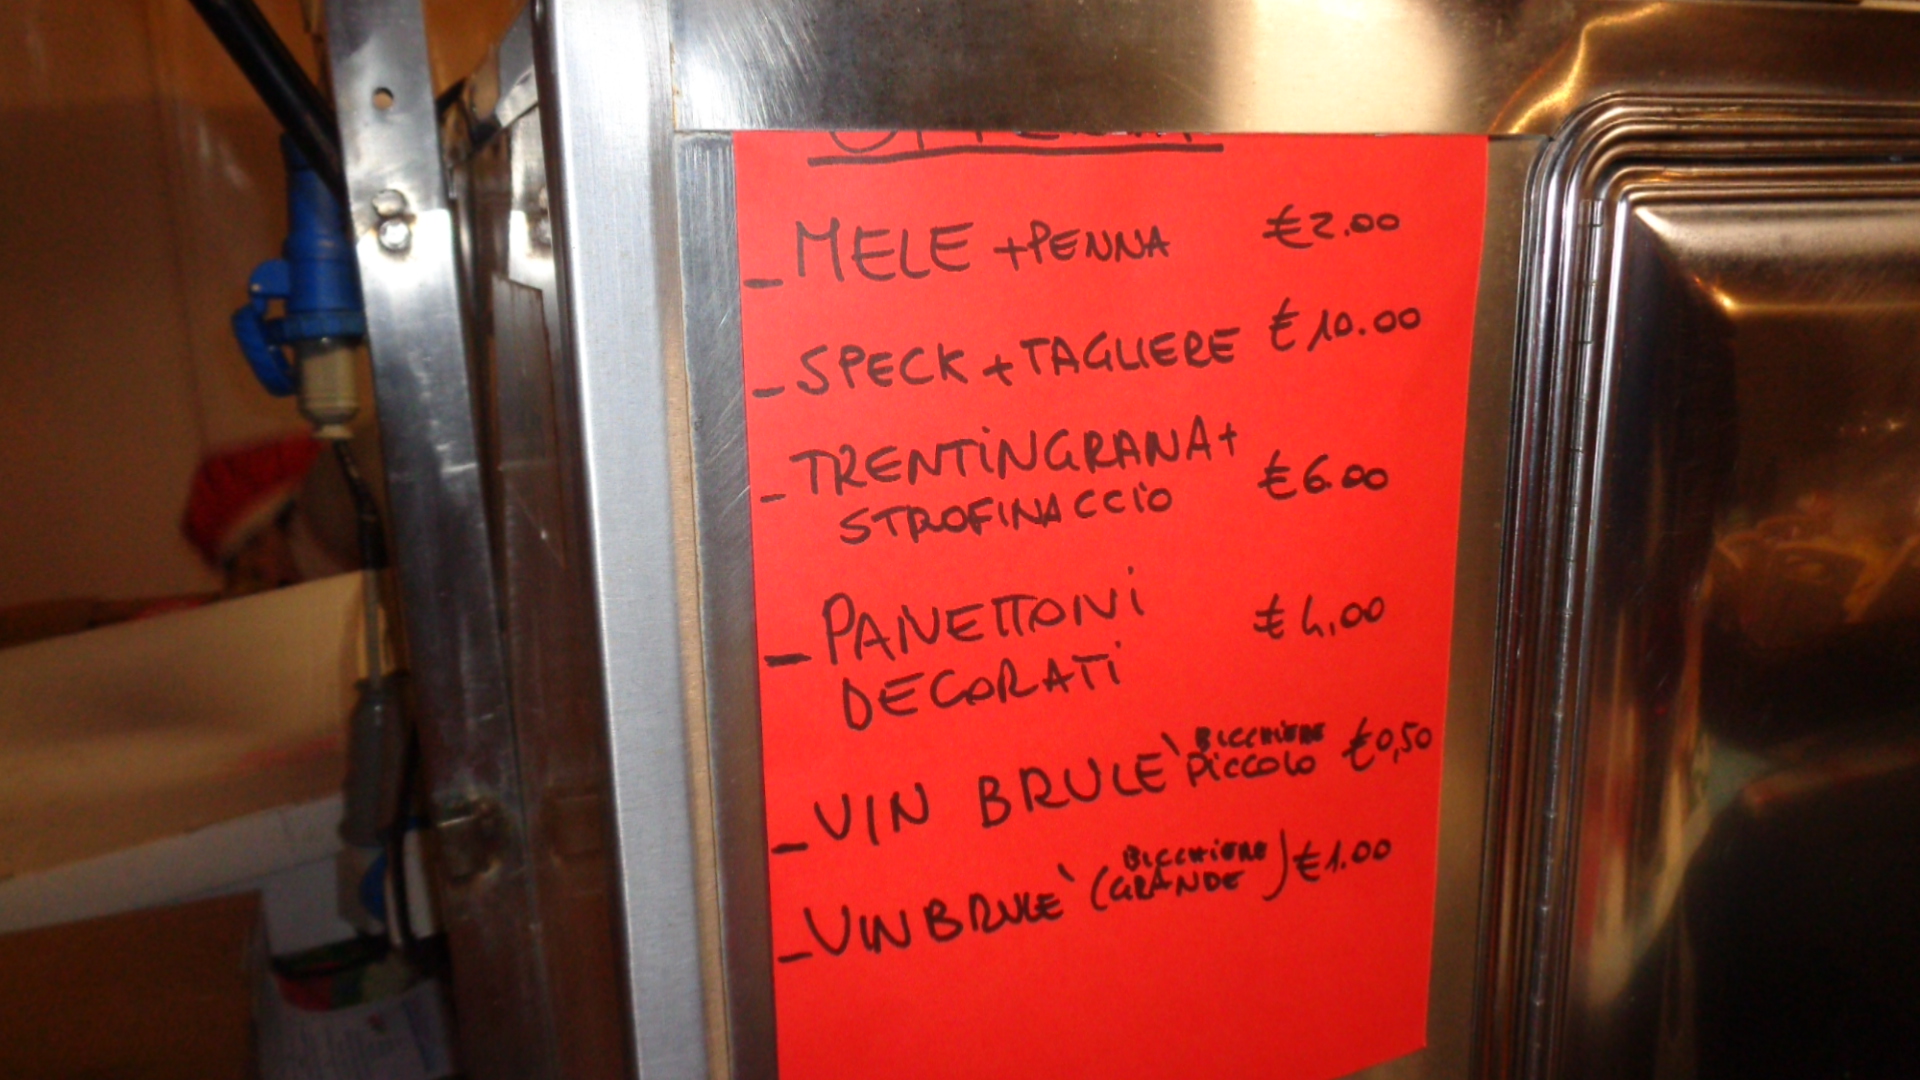 - MELE + PENNA €2.00
- SPECK + TAGLIERE €10.00
- TRENTINGRANA +
STROFINACCIO €6.00
- PANETTONI €4,00
DECORATI
- VIN BRULE' BICCHIERE PICCOLO €0,50
- VIN BRULE' (BICCHIERE GRANDE) €1.00